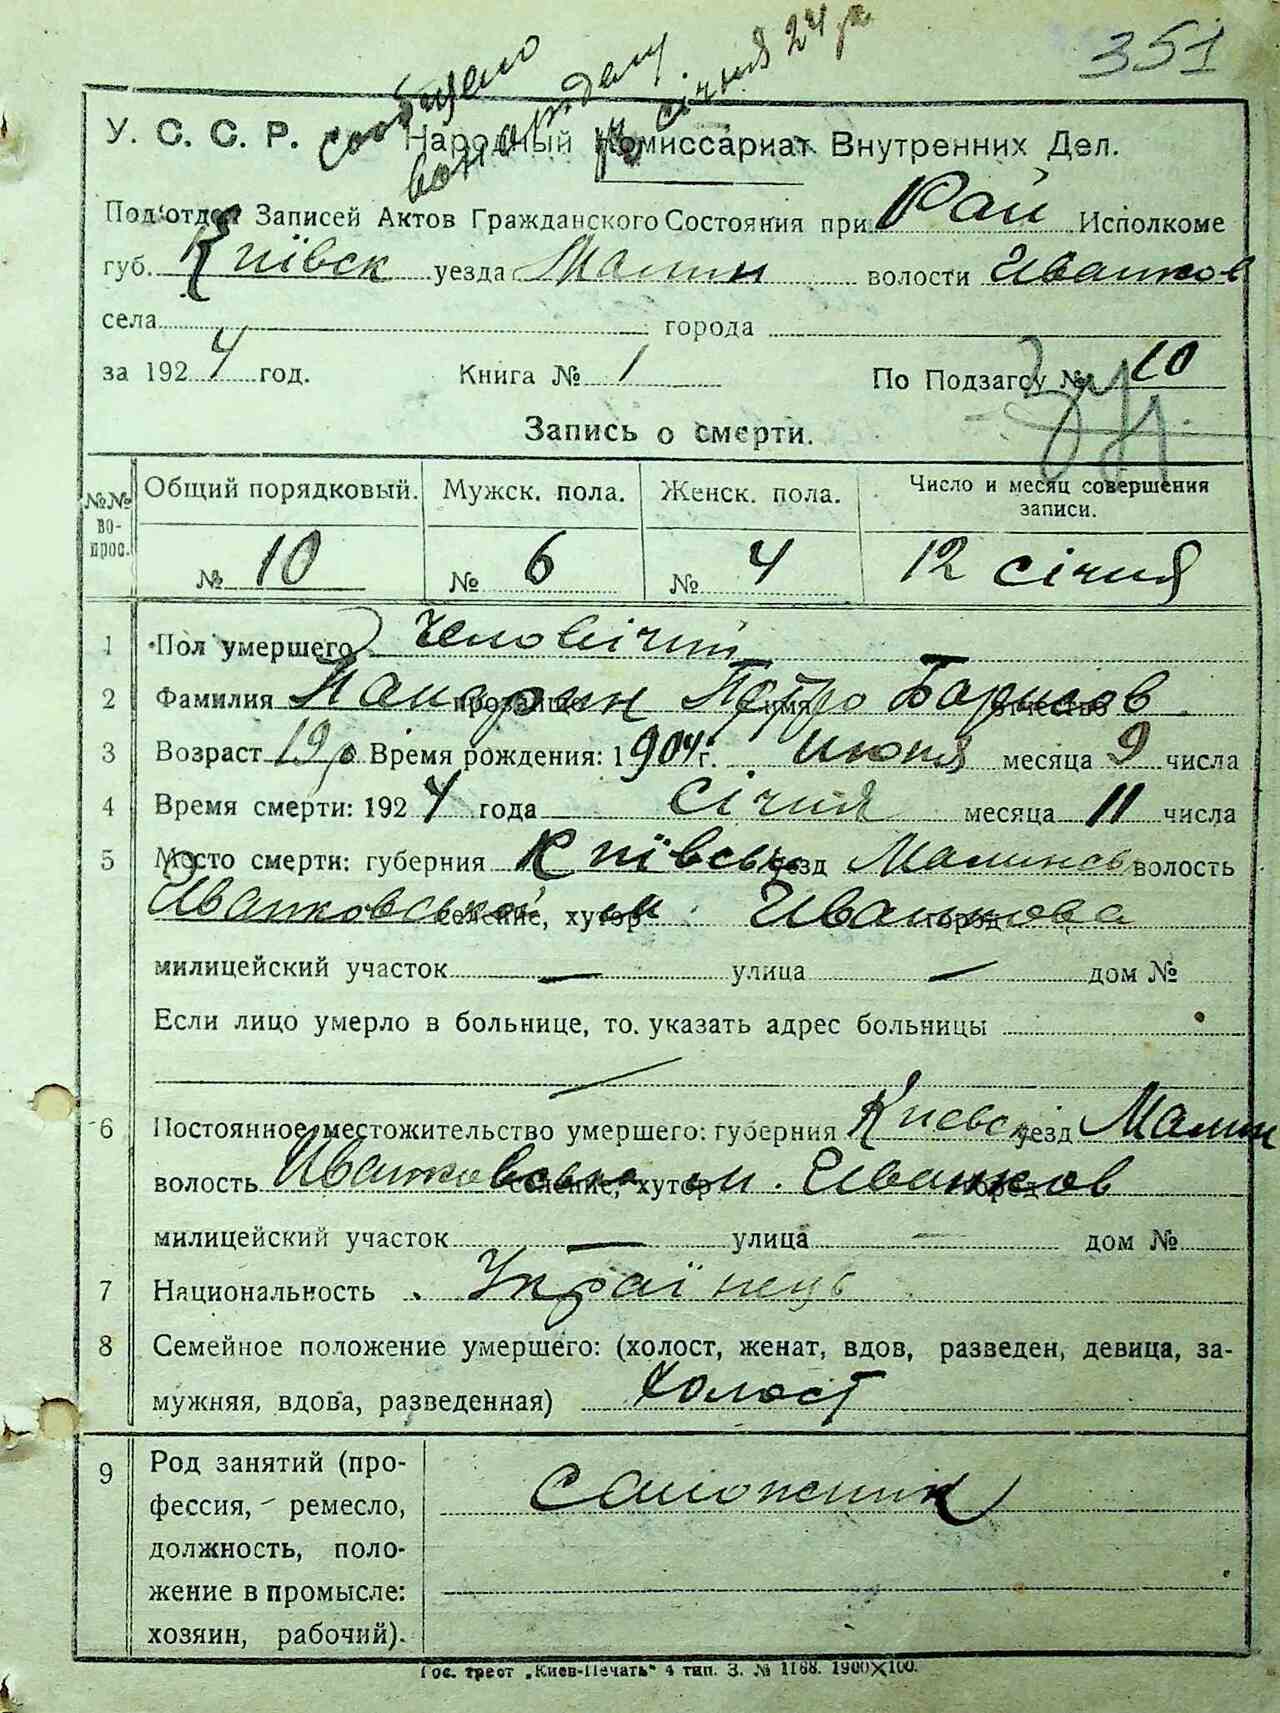 351
сообщено
січня 24 р.
У. С. С. Р. Народный Комиссариат Внутренних Дел.
Под'отдел Записей Актов Гражданского Состояния при Рай Исполкоме
губ. Київськ уезда Малин волости Иванков
села города
за 1924 год. Книга № 1 По Подзагсу № 10
Запись о смерти.
№№ вопрос. Общий порядковый. Мужск. пола. Женск. пола. Число и месяц совершения записи.
№ 10 № 6 № 4 12 січня
1 Пол умершего Чоловічий
2 Фамилия прозвище имя Петро отчество Борисов
3 Возраст 19 р Время рождения: 1904 г. июня месяца 9 числа
4 Время смерти: 1924 года Січня месяца 11 числа
5 Место смерти: губерния Київськ уезд Малинсь волость
Иванковської селение, хутор м. Иванкова город
милицейский участок — улица — дом №
Если лицо умерло в больнице, то указать адрес больницы
6 Постоянное местожительство умершего: губерния Киевск уезд Малин
волость Иванковська селение, хутор м. Иванков город
милицейский участок — улица — дом №
7 Национальность Українець
8 Семейное положение умершего: (холост, женат, вдов, разведен, девица, за-
мужняя, вдова, разведенная) Холост
9 Род занятий (про-
фессия, ремесло, Сапожник
должность, поло-
жение в промысле:
хозяин, рабочий).
Гос. трест „Киев-Печать" 4 тип. З. № 1168. 1900×100.